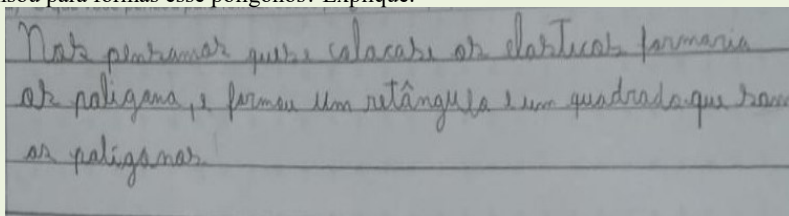 pensou para formas esse polígonos? Explique.
Nos pensamos que se colocase os elasticos formaria
os poligono, e formou um retângulo e um quadrado que som
os poligonos